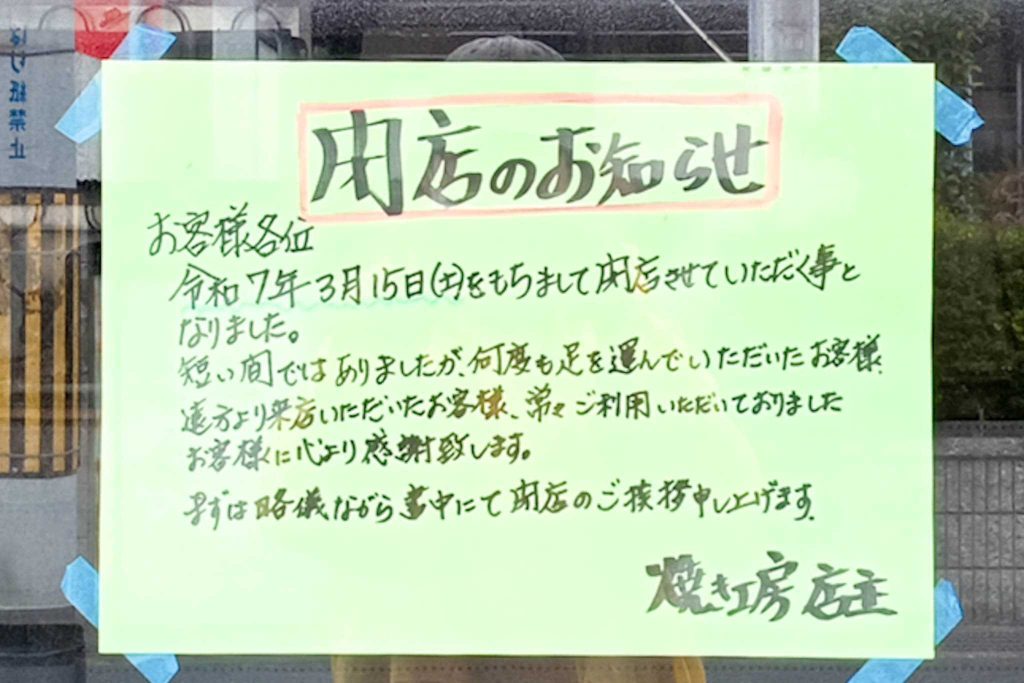 はり紙禁止
閉店のお知らせ
お客様各位
令和7年3月15日(土)をもちまして閉店させていただく事と
なりました。
短い間ではありましたが、何度も足を運んでいただいたお客様、
遠方より来店いただいたお客様、常々ご利用いただいておりました
お客様に心より感謝致します。
まずは略儀ながら書中にて閉店のご挨拶申し上げます。
焼き工房 店主